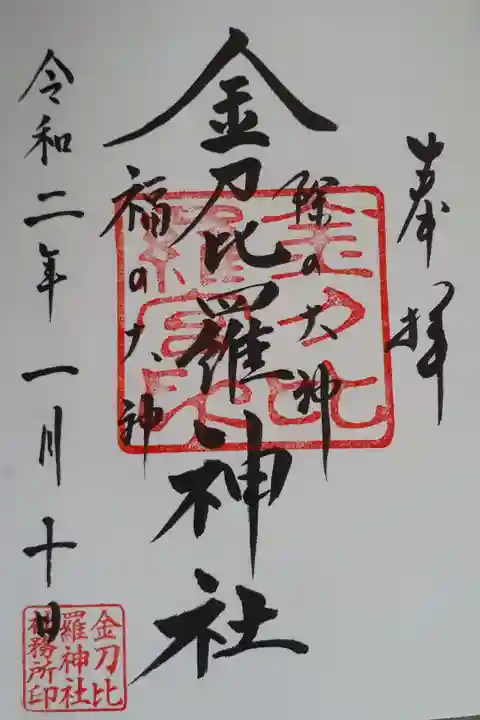 奉拝
除の大神
金刀比羅神社
福の大神
令和二年一月十日
金刀比
羅神社
社務所印